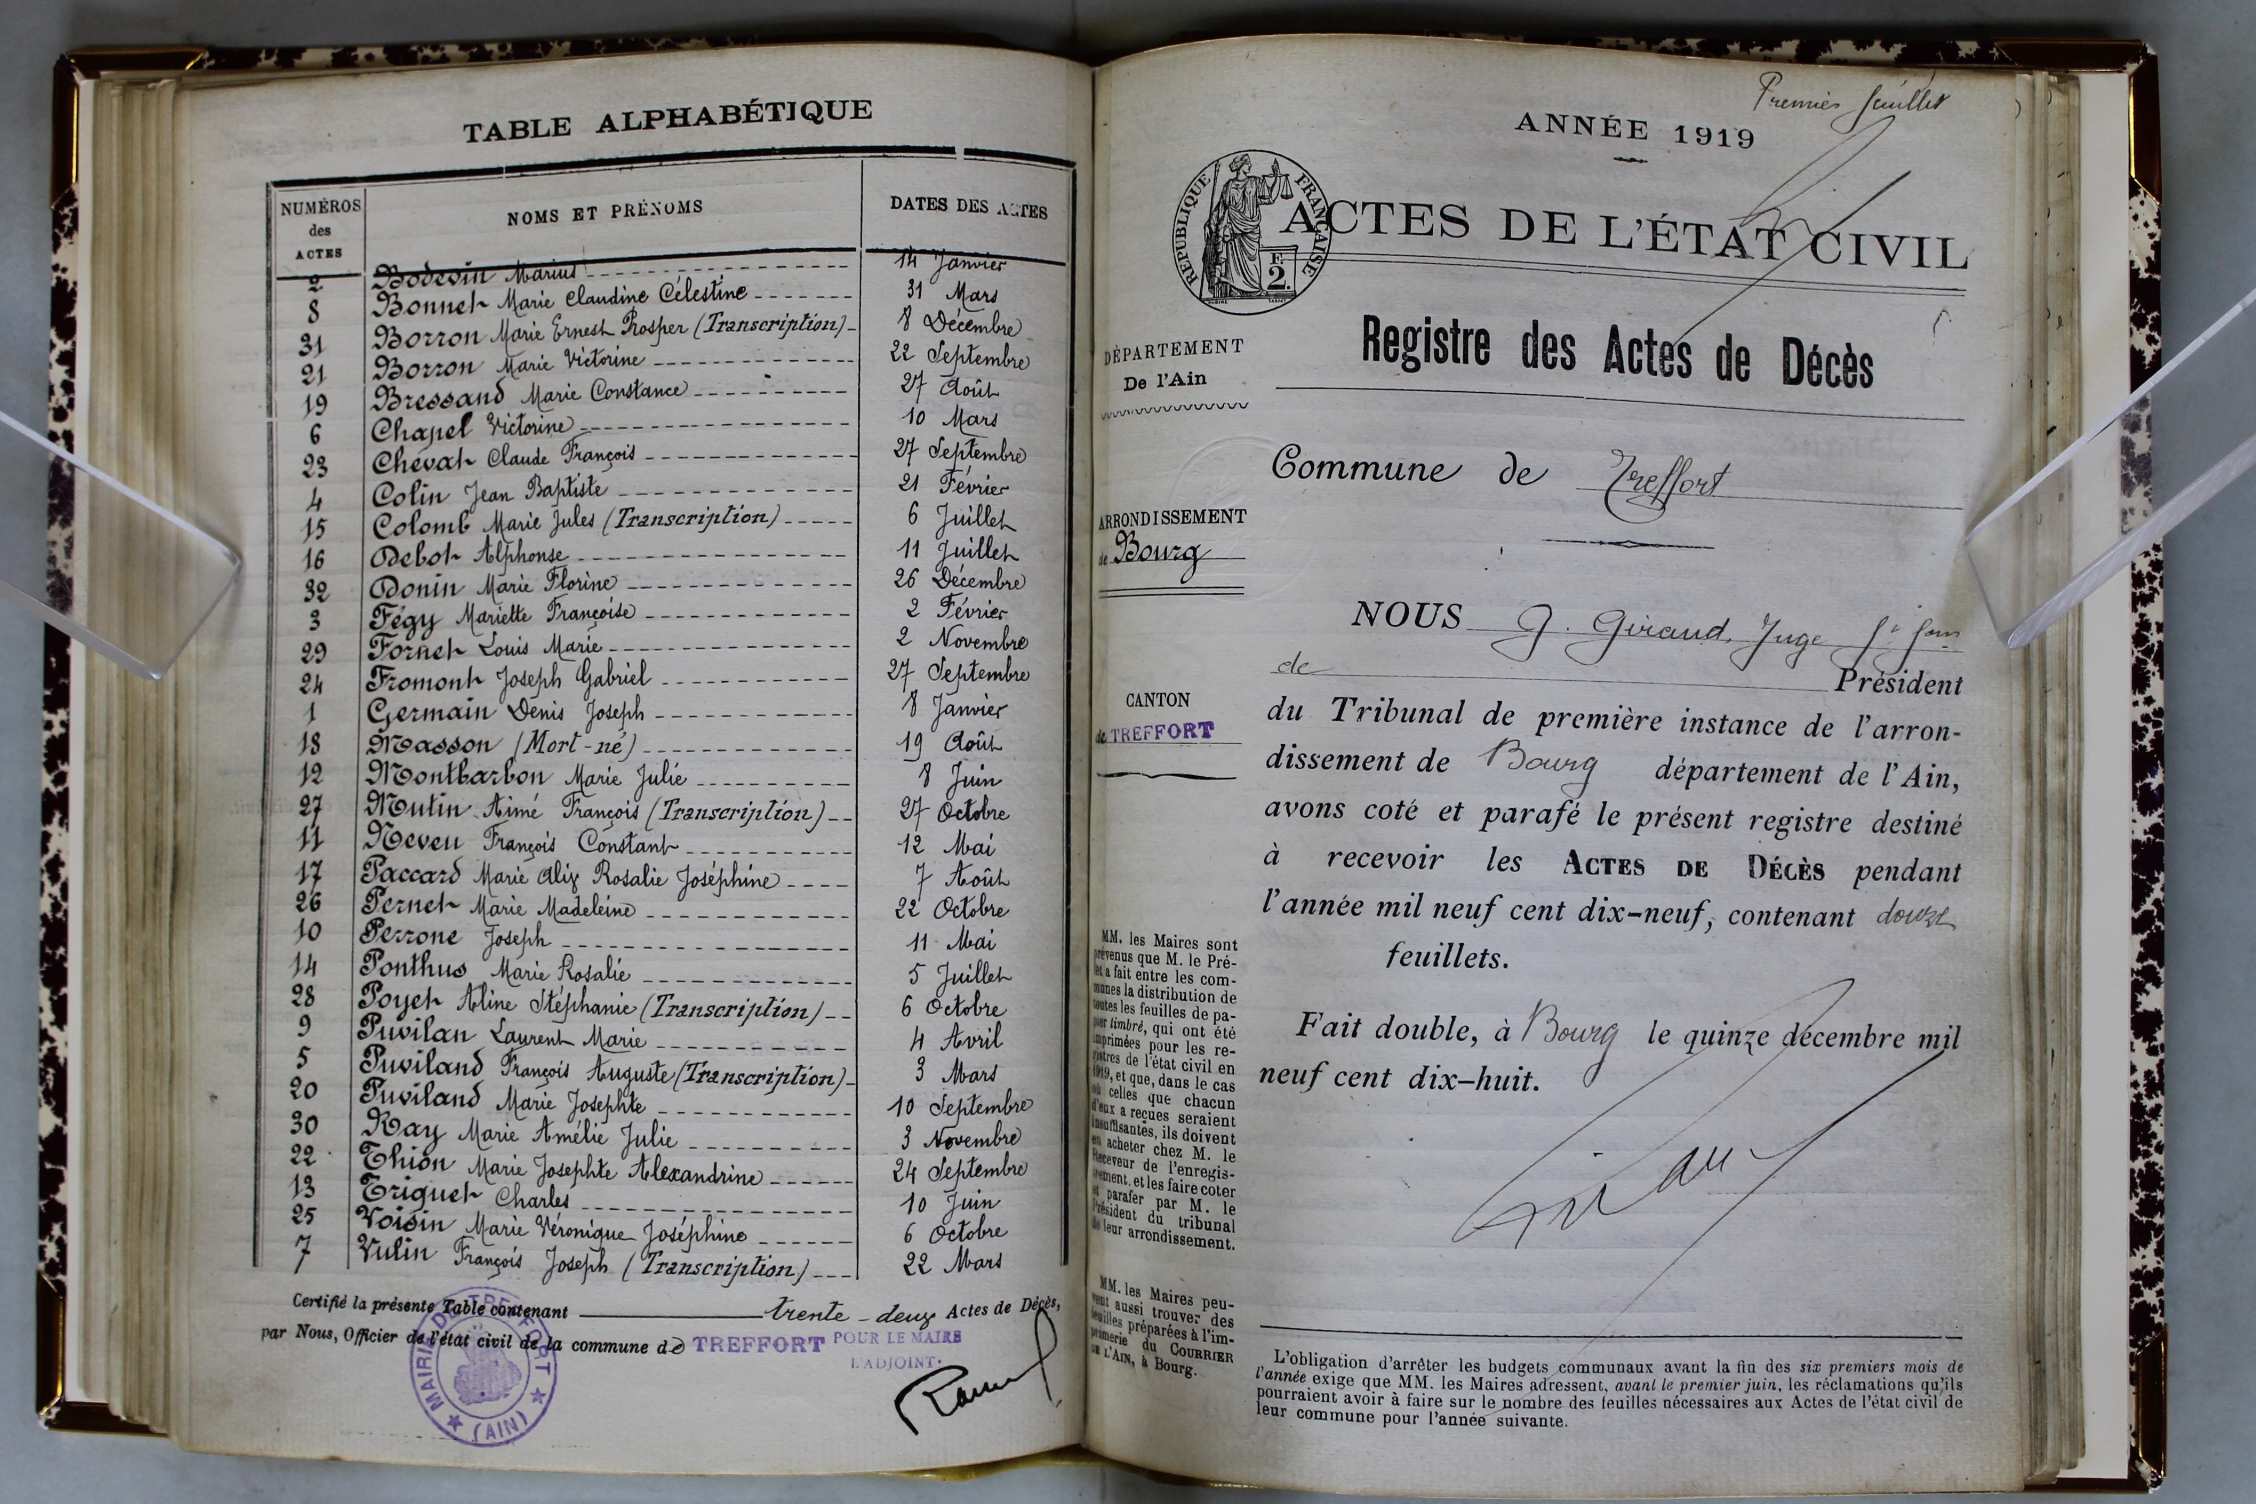 TABLE ALPHABÉTIQUE
NUMÉROS des ACTES NOMS ET PRÉNOMS DATES DES ACTES
2 Bodevin Marius 14 Janvier
8 Bonnet Marie Claudine Célestine 31 Mars
31 Borron Marie Ernest Prosper (Transcription) 8 Décembre
21 Borron Marie Victorine 22 Septembre
19 Bressand Marie Constance 27 Août
6 Chapel Victorine 10 Mars
23 Chevat Claude François 27 Septembre
4 Colin Jean Baptiste 21 Février
15 Colomb Marie Jules (Transcription) 6 Juillet
16 Debot Alphonse 11 Juillet
32 Donin Marie Florine 26 Décembre
3 Fégy Mariette Françoise 2 Février
29 Fornet Louis Marie 2 Novembre
24 Fromont Joseph Gabriel 27 Septembre
1 Germain Denis Joseph 8 Janvier
18 Masson (Mort-né) 19 Août
12 Montbarbon Marie Julie 8 Juin
27 Mutin Aimé François (Transcription) 27 Octobre
11 Neveu François Constant 12 Mai
17 Paccard Marie Alix Rosalie Joséphine 7 Août
26 Pernet Marie Madeleine 22 Octobre
10 Perrone Joseph 11 Mai
14 Ponthus Marie Rosalie 5 Juillet
28 Poyet Aline Stéphanie (Transcription) 6 Octobre
9 Puvilan Laurent Marie 4 Avril
5 Puviland François Auguste (Transcription) 3 Mars
20 Puviland Marie Josephte 10 Septembre
30 Ray Marie Amélie Julie 3 Novembre
22 Thion Marie Josephte Alexandrine 24 Septembre
13 Triquet Charles 10 Juin
25 Voisin Marie Véronique Joséphine 6 Octobre
7 Vulin François Joseph (Transcription) 22 Mars
Certifié la présente Table contenant trente-deux Actes de Décès,
par Nous, Officier de l'état civil de la commune de TREFFORT POUR LE MAIRE
L'ADJOINT.
MAIRIE DE TREFFORT (AIN)
Premier feuillet
ANNÉE 1919
REPUBLIQUE FRANÇAISE
F. 2.
ACTES DE L'ÉTAT CIVIL
Registre des Actes de Décès
DÉPARTEMENT
De l'Ain
Commune de Treffort
ARRONDISSEMENT
de Bourg
NOUS G. Giraud, Juge
de Président
CANTON
de TREFFORT
du Tribunal de première instance de l'arron-
dissement de Bourg département de l'Ain,
avons coté et parafé le présent registre destiné
à recevoir les ACTES DE DÉCÈS pendant
l'année mil neuf cent dix-neuf, contenant douze
feuillets.
Fait double, à Bourg le quinze décembre mil
neuf cent dix-huit.
MM. les Maires sont
prévenus que M. le Pré-
fet a fait entre les com-
munes la distribution de
toutes les feuilles de pa-
pier timbré, qui ont été
imprimées pour les re-
gistres de l'état civil en
1919, et que, dans le cas
où celles que chacun
d'eux a reçues seraient
insuffisantes, ils doivent
en acheter chez M. le
Receveur de l'enregis-
trement, et les faire coter
et parafer par M. le
Président du tribunal
de leur arrondissement.
MM. les Maires peu-
vent aussi trouver des
feuilles préparées à l'im-
primerie du COURRIER
DE L'AIN, à Bourg.
L'obligation d'arrêter les budgets communaux avant la fin des six premiers mois de
l'année exige que MM. les Maires adressent, avant le premier juin, les réclamations qu'ils
pourraient avoir à faire sur le nombre des feuilles nécessaires aux Actes de l'état civil de
leur commune pour l'année suivante.